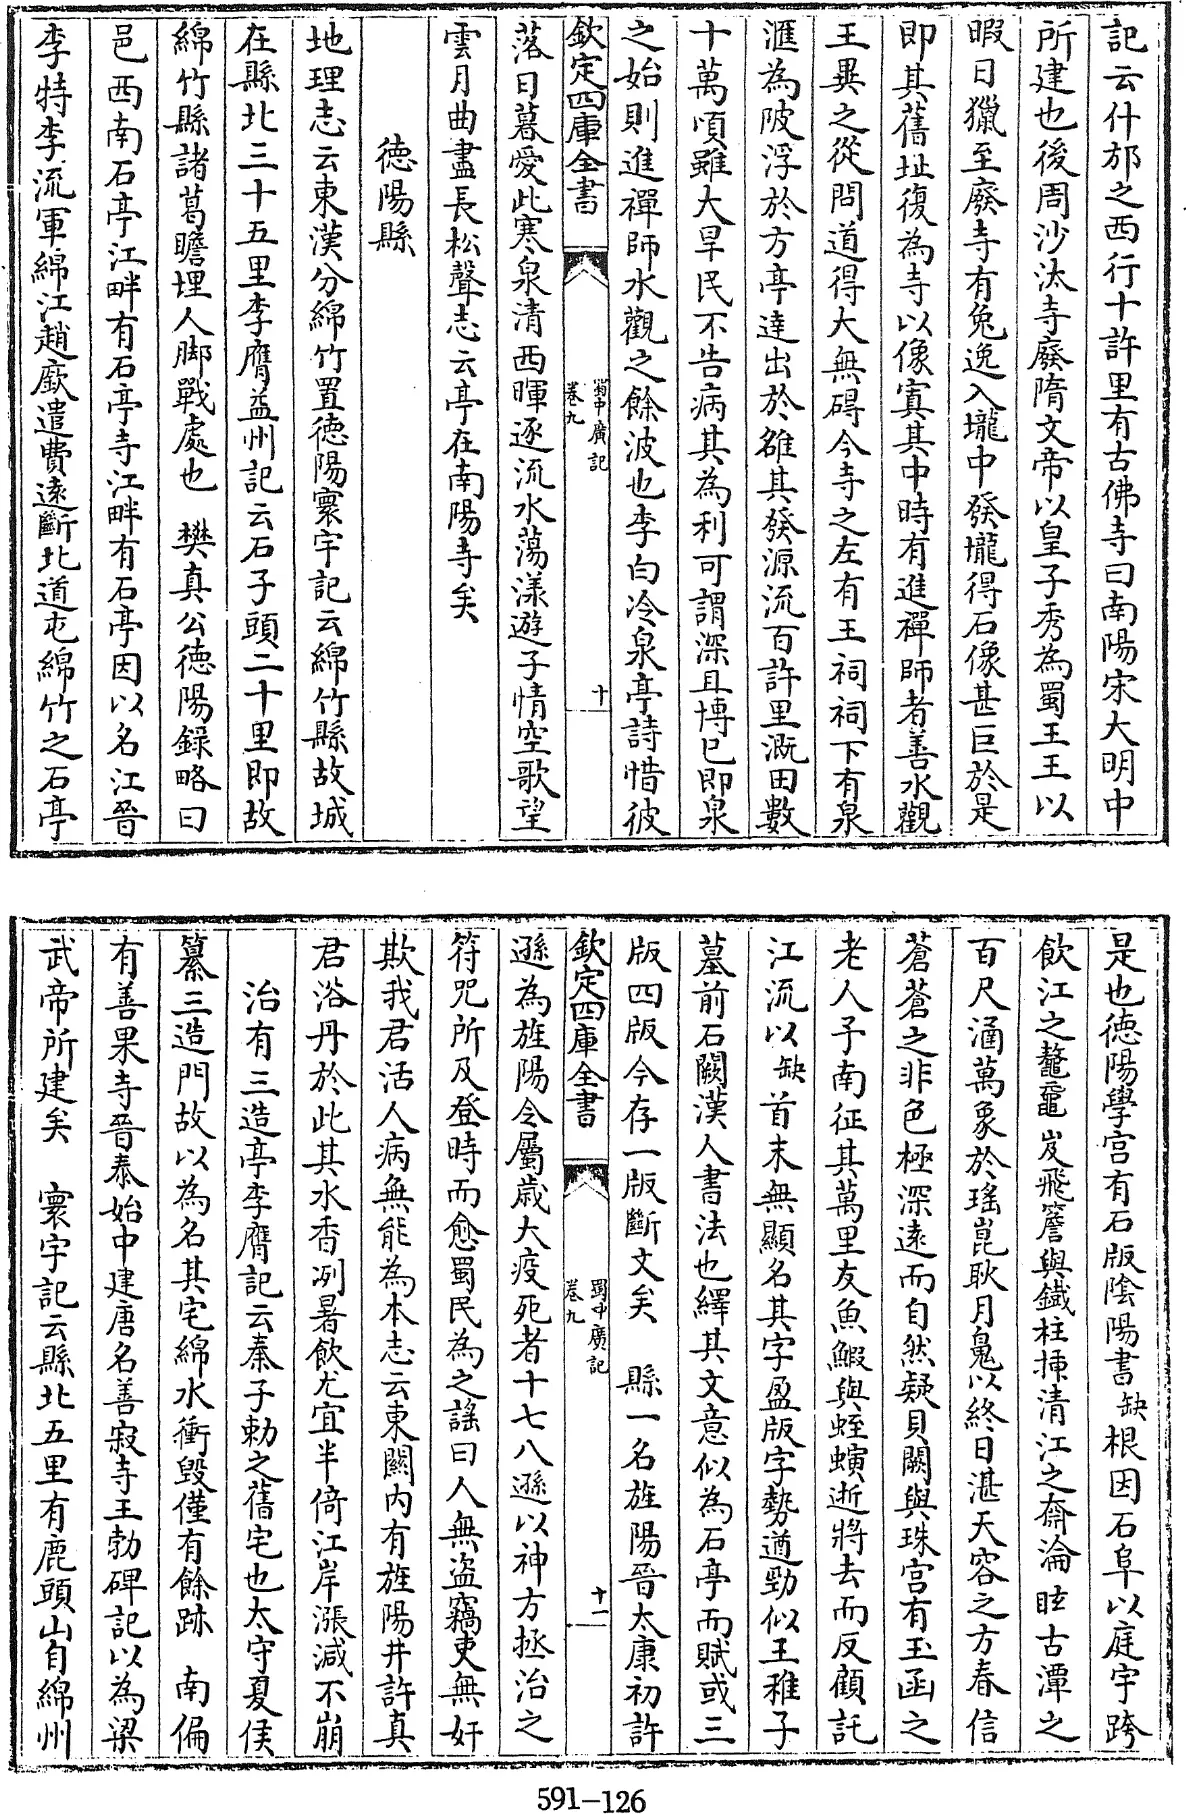 記云什邡之西行十許里有古佛寺曰南陽宋大明中
所建也後周沙汰寺廢隋文帝以皇子秀為蜀王王以
暇日獵至廢寺有兔逸入壠中發壠得石像甚巨於是
即其舊址復為寺以像寘其中時有進禪師者善水觀
王異之從問道得大無碍今寺之左有王祠祠下有泉
滙為陂浮於方亭達出於雒其發源流百許里溉田數
十萬頃雖大旱民不告病其為利可謂深且博已即泉
之始則進禪師水觀之餘波也李白冷泉亭詩惜彼
欽定四庫全書
蜀中廣記
卷九
十
落日暮愛此寒泉清西暉逐流水蕩漾遊子情空歌望
雲月曲盡長松聲志云亭在南陽寺矣
德陽縣
地理志云東漢分綿竹置德陽寰宇記云綿竹縣故城
在縣北三十五里李膺益州記云石子頭二十里即故
綿竹縣諸葛瞻埋人脚戰處也　樊真公德陽錄略曰
邑西南石亭江畔有石亭寺江畔有石亭因以名江晉
李特李流軍綿江趙廞遣費遠斷北道屯綿竹之石亭
是也德陽學宮有石版陰陽書缺根因石阜以庭宇跨
飲江之鼇黿岌飛簷與鐵柱揷清江之奫淪眭古潭之
百尺涵萬象於瑤崑耿月鬼以終日湛天容之方春信
蒼蒼之非色極深遠而自然疑貝闕與珠宮有玉函之
老人子南征其萬里友魚鰕與蛭螾逝將去而反顧託
江流以缺首末無顯名其字盈版字勢遒勁似王稚子
墓前石闕漢人書法也繹其文意似為石亭而賦或三
版四版今存一版斷文矣　縣一名旌陽晉太康初許
欽定四庫全書
蜀中廣記
卷九
十一
遜為旌陽令屬歲大疫死者十七八遜以神方拯治之
符咒所及登時而愈蜀民為之謠曰人無盜竊吏無奸
欺我君活人病無能為本志云東關內有旌陽井許真
君浴丹於此其水香冽暑飲尤宜半倚江岸漲減不崩
治有三造亭李膺記云秦子勅之舊宅也太守夏侯
纂三造門故以為名其宅綿水衝毀僅有餘跡　南偏
有善果寺晉泰始中建唐名善寂寺王勃碑記以為梁
武帝所建矣　寰宇記云縣北五里有鹿頭山自綿州
591-126